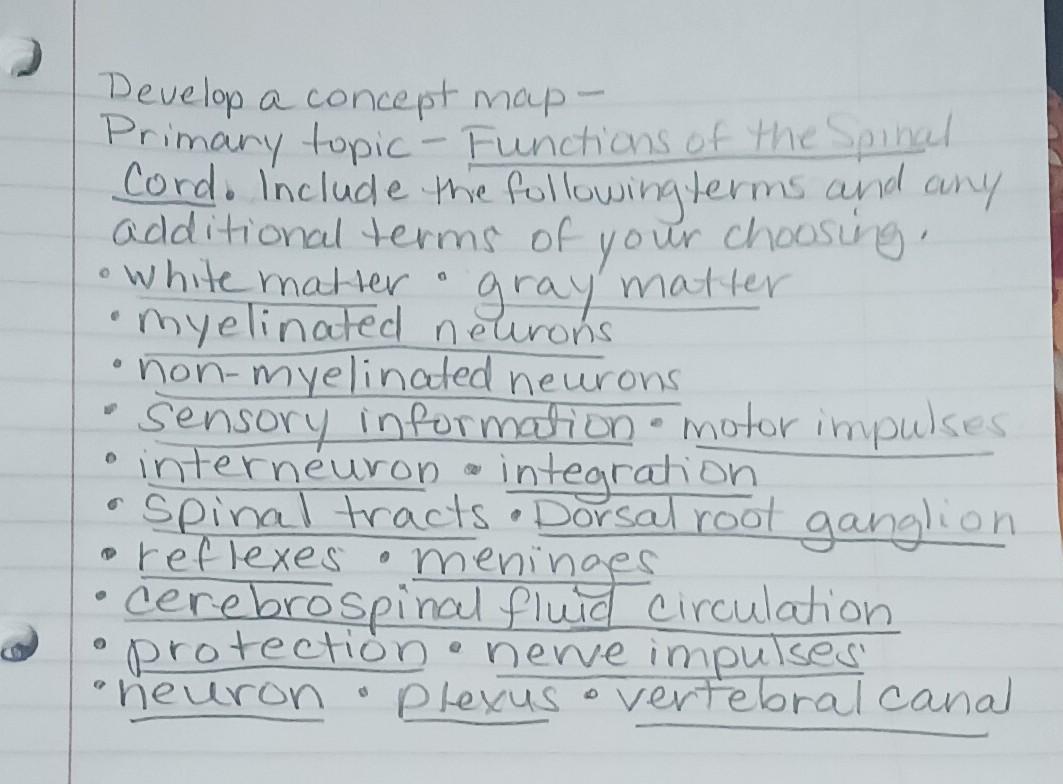 Develop a concept map -
Primary topic - Functions of the Spinal
Cord. Include the following terms and any
additional terms of your choosing.
• white matter • gray matter
• myelinated neurons
• non-myelinated neurons
• sensory information • motor impulses
• interneuron • integration
• spinal tracts • Dorsal root ganglion
• reflexes • meninges
• cerebrospinal fluid circulation
• protection • nerve impulses
• neuron • plexus • vertebral canal